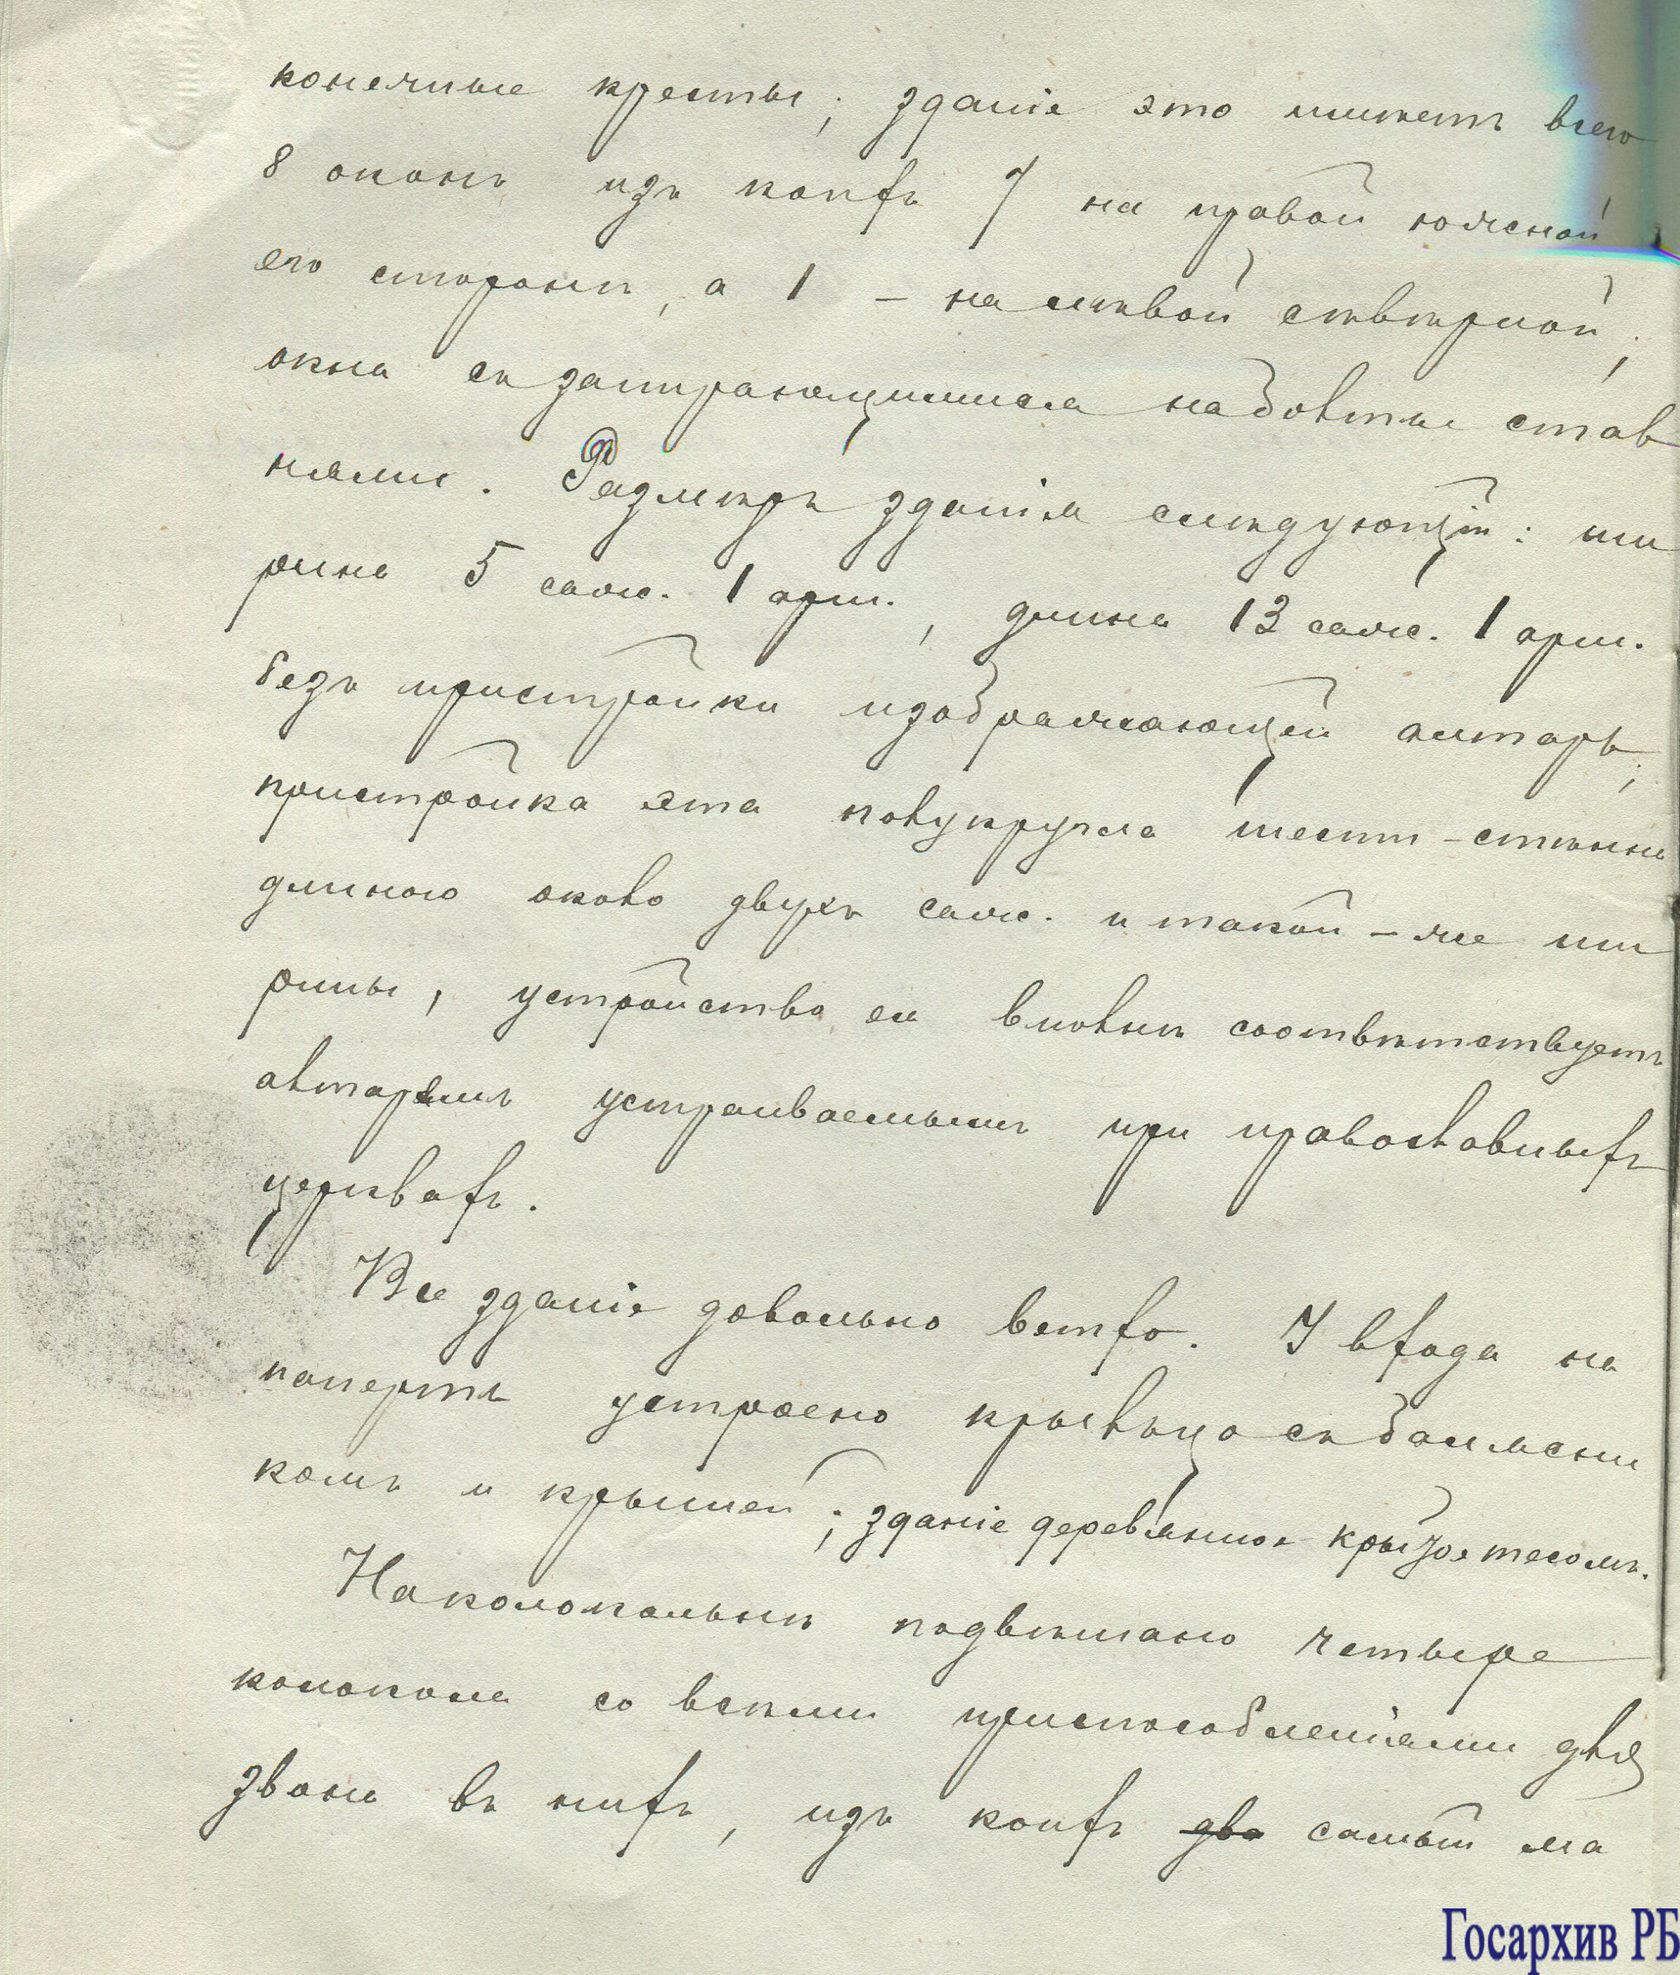 конечные кресты; зданіе это имѣетъ всего
8 оконъ изъ коихъ 7 на правой южной
его сторонѣ, а 1 – на лѣвой сѣверной;
окна съ запирающимися на болты став
нями. Размѣръ зданія слѣдующій: ши
рина 5 саж. 1 арш., длина 13 саж. 1 арш.
безъ пристройки изображающей алтарь;
пристройка эта полукругла шести-стѣнна
длиною около двухъ саж. и такой-же ши
рины, устройство ея вполнѣ соотвѣтствуетъ
алтарямъ устраиваемымъ при православныхъ
церквахъ.
Все зданіе довольно ветхо. У входа на
паперть устроено крыльцо съ балясни
комъ и крышей; зданіе деревянное крытое тесомъ.
На колокольнѣ подвѣшано четыре
колокола со всѣми приспособленіями для
звона въ нихъ, изъ коихъ два самый ма
Госархив РБ